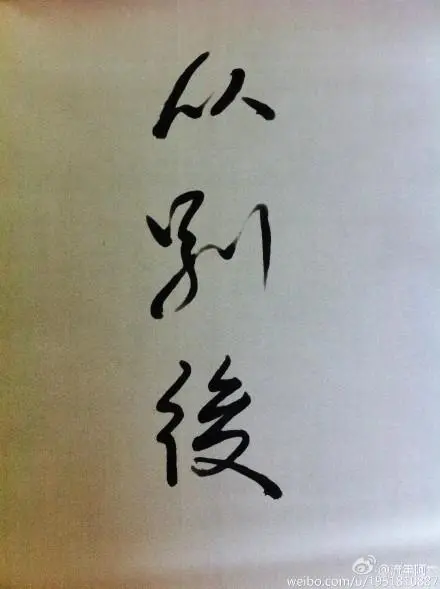 从别後
@流年阿
weibo.com/u/1951810887